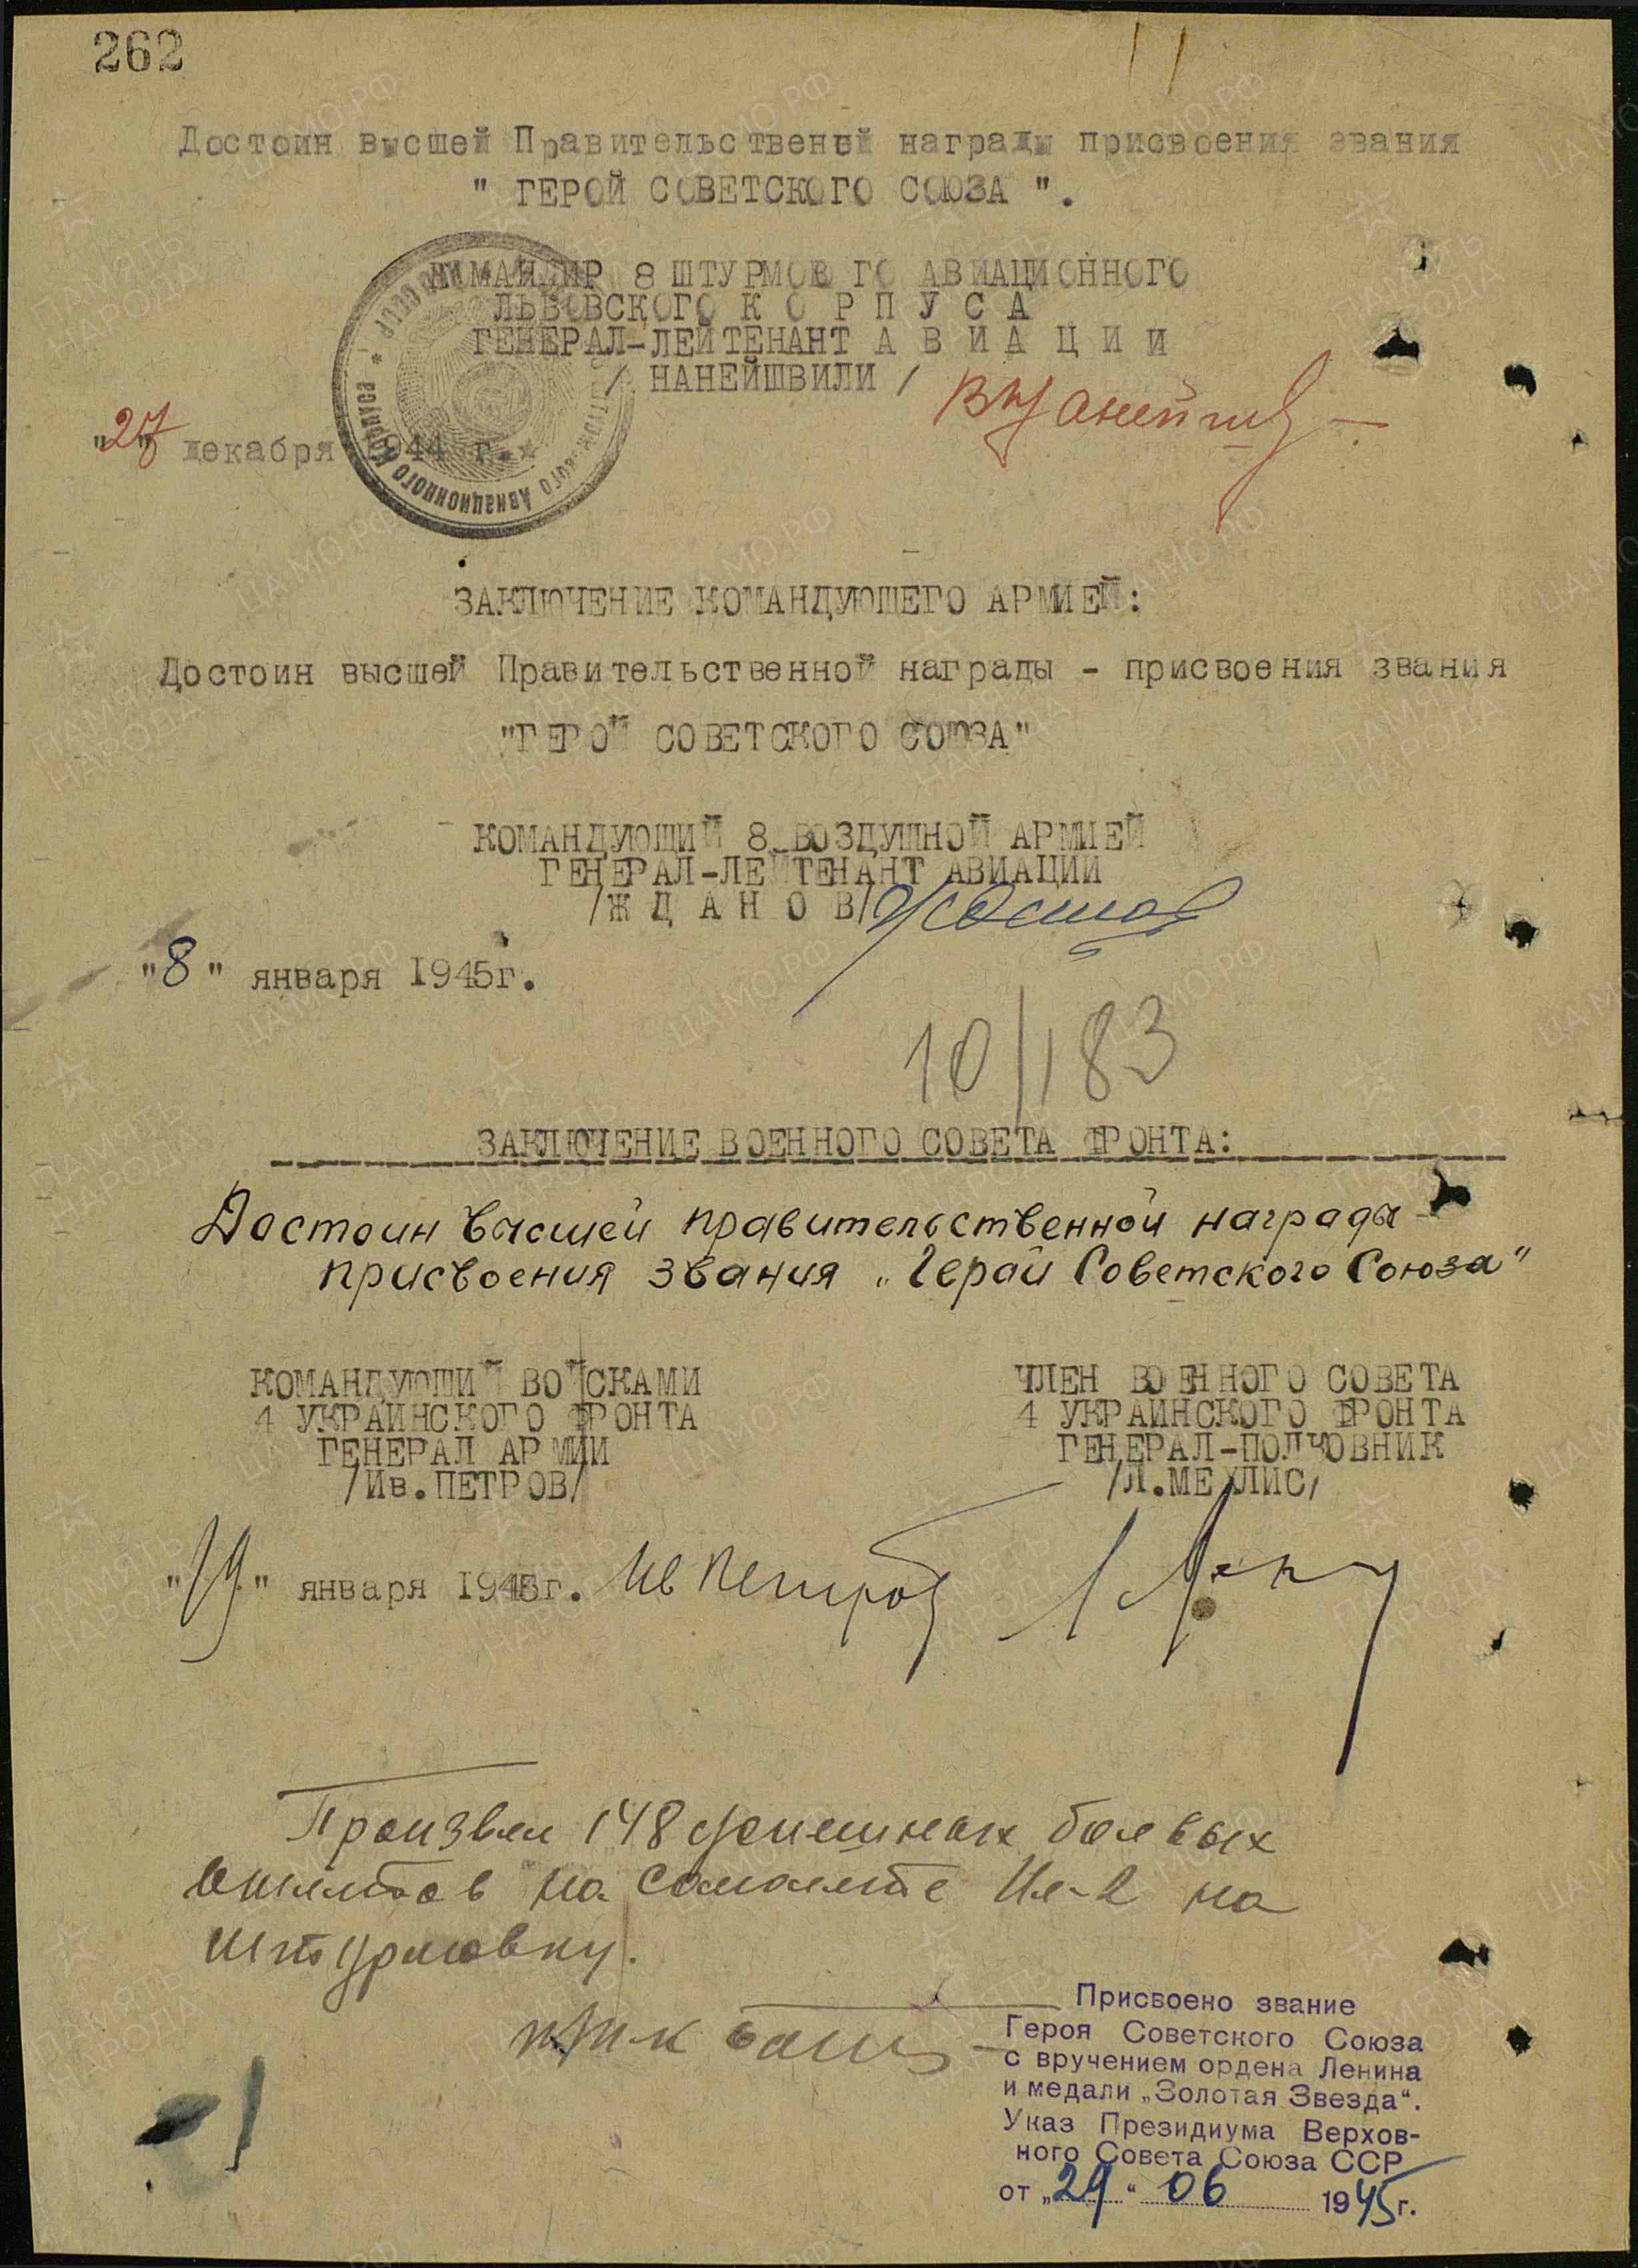 262
Достоин высшей Правительственей награды присвоения звания
" ГЕРОЙ СОВЕТСКОГО СОЮЗА ".
КОМАНДИР 8 ШТУРМОВ ГО АВИАЦИОННОГО
ЛЬВОВСКОГО К О Р П У С А
ГЕНЕРАЛ-ЛЕЙТЕНАНТ А В И А Ц И И
/ НАНЕЙШВИЛИ /
"27" декабря 1944 г.
ЗАКЛЮЧЕНИЕ КОМАНДУЮЩЕГО АРМИЕЙ:
Достоин высшей Правительственной награды - присвоения звания
"ГЕРОЙ СОВЕТСКОГО СОЮЗА"
КОМАНДУЮЩИЙ 8 ВОЗДУШНОЙ АРМИЕЙ
ГЕНЕРАЛ-ЛЕЙТЕНАНТ АВИАЦИИ
/Ж Д А Н О В/
"8" января 1945г.
10/183
ЗАКЛЮЧЕНИЕ ВОЕННОГО СОВЕТА ФРОНТА:
Достоин высшей правительственной награды
присвоения звания „Герой Советского Союза"
КОМАНДУЮЩИЙ ВОЙСКАМИ
4 УКРАИНСКОГО ФРОНТА
ГЕНЕРАЛ АРМИИ
/Ив.ПЕТРОВ/
ЧЛЕН ВОЕННОГО СОВЕТА
4 УКРАИНСКОГО ФРОНТА
ГЕНЕРАЛ-ПОЛКОВНИК
/Л.МЕХЛИС/
"19" января 1945г. Ив Петров
Произвел 148 успешных боевых
вылетов на самолете Ил-2 на
штурмовку.
Присвоено звание
Героя Советского Союза
с вручением ордена Ленина
и медали „Золотая Звезда".
Указ Президиума Верхов-
ного Совета Союза ССР
от „29" 06 1945г.